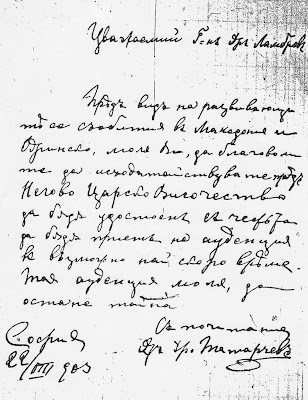 Уважаемий Г-нъ Дръ Ламбревъ
Предъ видъ на развивающи
тѣ се събития въ Македония и
Одринско, моля Ви, да благоволи
те да исходатайствувате предъ
Негово Царско Височество
да бѫдѫ удостоенъ съ честьта
да бѫдѫ приетъ на ауденция
въ възможно най скоро врѣме.
Тая ауденция моля, да
остане тайна
Съ почитание
София
22/VIII 903
Дръ Хр. Татарчевъ